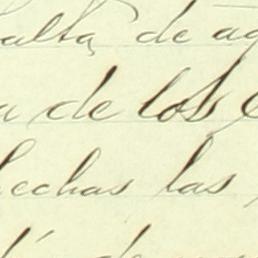 alta, de ag
a de los
hechas las
de